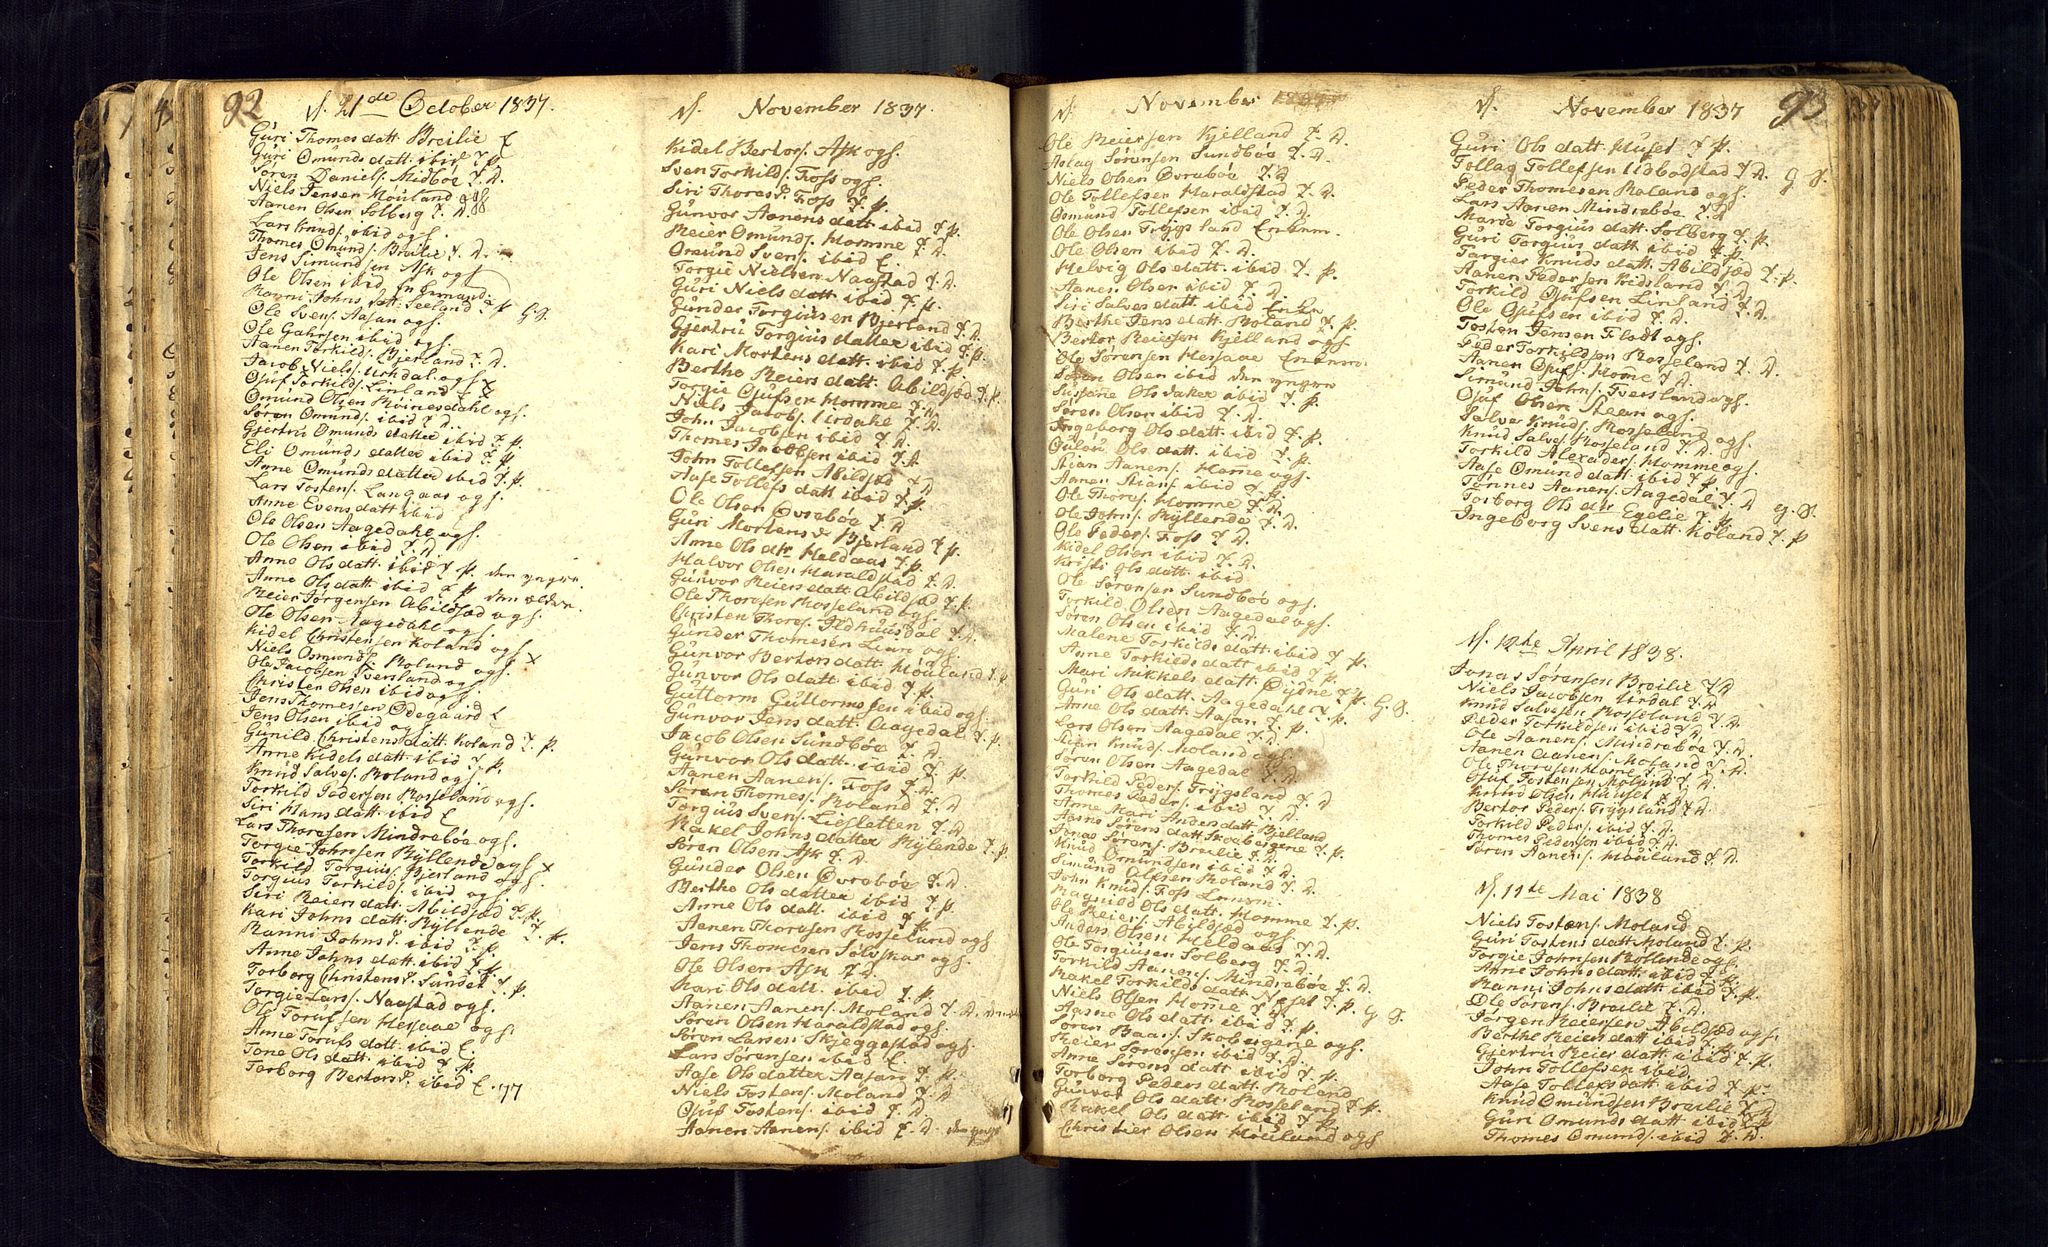 92
d. 21de October 1837.
Guri Thomesdatt Breilie E
Guri Omunds datt. ibid T. P.
Søren Daniels. Midbøe T. D.
Niels Jensen Houland ogs
Aanen Olsen Solberg T. D.
Lars Knuds. ibid ogs.
Thomes Omunds. Breilie T. D.
Jens Simundsen Ask ogs
Ole Olsen ibid
Ranni Johns datt. Seeland G. S.
Ole Svens. Aasan ogs.
Ole Gahrsen ibid ogs.
Aanen Torkilds. Bjerland T. D.
Jacob Niels. Lirdal ogs x
Ojuf Torkilds. Linland E x
Omund Olsen Kvinesdahl ogs.
Søren Omunds. ibid T. D.
Gjertru Omunds datter ibid T. P.
Eli Omunds datter ibid T. P.
Anne Omunds datter ibid T. P.
Lars Tostens. Langaas ogs.
Anne Evens datt ibid
Ole Olsen Aagedahl ogs.
Ole Olsen ibid T. D.
Anne Ols datt. ibid T. P. den yngre
Anne Ols datt ibid T. P. den ælder.
Reier Jørgensen Abildsæd ogs.
Ole Olsen Aagedahl ogs.
Kidel Christensen Roland ogs x
Niels Osmunds. Roland ogs.
Ole Jacobsen Iversland ogs.
Christen Olsen ibid ogs.
Jens Thomessen Ødegaard E
Jens Olsen ibid ogs.
Gunild Christens datt. Roland T. P.
Anne Kidels datt ibid T. P.
Knud Salves. Roland ogs.
Torkild Pedersen Rosseland ogs.
Siri Hans datt. ibid E
Lars Thorasen Mindrebøe ogs.
Torgie Johnsen Ryllende ogs x
Torkild Torgius. Bjerland ogs.
Torgius Torkilds. ibid ogs.
Siri Reiers datt. Abildsæd T. P.
Kari Johns datt. Ryllende T. P.
Ranni Johns d. ibid T. P.
Anne Johns datt. ibid T. P.
Torborg Christens d. Sundet T. P.
Torgie Lars. Naastad ogs.
Ole Torufssen Hessaae ogs.
Anne Torufs datt ibid E.
Tone Ols datt. ibid T. P.
Torborg Bertors d. ibid E. 77
d. November 1837.
Kidel Bertors. Ask ogs.
Sven Torkilds. Foss ogs.
Siri Thores d. Foss T. P.
Gunvor Aanens datt ibid T. P.
Reier Omunds. Homme T. D.
Omund Svens. ibid E.
Torgie Nielsen Naastad T. D.
Guri Niels datt ibid T. P.
Gunder Torgiussen Bjerland T. D.
Gjertru Torgius datter ibid T. P.
Kari Mortens datt. ibid T. P.
Berthe Reiers datt Abildsæd T. P.
Torgie Ojufsen Homme T. D.
Niels Jacobs. Lirdahl T. D.
John Jacobsen ibid T. D.
Thomes Jacobsen ibid T. D.
John Tollefsen Abildsæd T. D.
Aase Tollefs datt ibid T. P.
Ole Olsen Øvrebøe T. D.
Guri Mortens d. Bjerland T. P.
Anne Ols dtr Heldaas T. P.
Halvor Olsen Haraldstad T. D.
Gunvor Reiers datt Abildsæd T. P.
Ole Thorasen Rosseland ogs.
Christen Thores. Ildhuusdal T. D.
Gunder Thomesen Lian ogs.
Gunvor Bertors datt. Houland T. P.
Gunvor Ols datt. ibid T. P.
Guttorm Guttormssen ibid ogs.
Gunvor Jens datt. Aagedal T. P.
Jacob Olsen Sundbøe T. D.
Gunvor Ols datt. ibid T. P.
Aanen Aanens. Foss T. D.
Søren Thomes. Roland T. D.
Torgius Svens. Lisletten T. D.
Rakel Johns datter Rylende T. P.
Søren Olsen Ask T. D.
Gunder Olsen Øvrebøe T. D
Berthe Ols datter ibid T. P
Anne Ols datt. ibid T. P.
Aanen Thorasen Rosseland ogs
Jens Thomesen Sølvskar ogs.
Ole Olsen Ask T. D.
Kari Ols datt. ibid T. P.
Aanen Aanens. Moland T. D.
Søren Olsen Haraldstad ogs.
Søren Larsen Skjeggestad ogs.
Lars Sørensen ibid E.
Aase Ols datter Aasan T. P.
Niels Tostens. Moland T. D
Ojuf Tostens. ibid T. D.
Aanen Aanens. ibid T. D. den yngre
d. November
Ole Reiersen Kjelland T. D.
Aslag Sørensen Sundbøe T. D.
Niels Olsen Øvrebøe T. D
Ole Tollefsen Haraldstad T. D.
Osmund Tollefsen ibid T. D.
Ole Olsen Trygsland Enkem.
Ole Olsen ibid T. D.
Helvig Ols datt. ibid T. P.
Aanen Olsen ibid T. D.
Siri Salves datt ibid Enke
Berthe Jens datt. Roland T. P.
Bertor Reiersen Kjelland ogs.
Ole Sørensen Hessaae Enkem.
Søren Olsen ibid den yngre
Susanne Ols datter ibid T. P.
Søren Olsen ibid T. D.
Ingeborg Ols datt. ibid T. P.
Gulou Ols datt. ibid T. P.
Stian Aanens. Home ogs.
Aanen Stians. ibid T. D.
Ole Thoras. Homme T. D.
Ole Johns. Ryllende T. D.
Ole Peders. Foss T. D.
Kidel Olsen ibid T. D.
Kristi Ols datt. ibid
Ole Sørensen Sundbøe ogs.
Torkild Olsen Aagedal ogs.
Søren Olsen ibid T. D.
Malene Torkilds datt. ibid T. P.
Anne Torkilds datt ibid T. P.
Mari Mikkels datt. Øidne T. P. G. S.
Guri Ols datt. Aagedahl T. P.
Anne Ols datt. Aasan T. P.
Lars Olsen Aagedal T. D.
Stian Knuds. Moland ogs.
Søren Olsen Aagedal T. D.
Torkild Peders. Trygsland T. D
Thomes Peders. ibid T. D.
Anne Mari Anders datt Bjelland
Aasne Sørens datt Skoebergene T. P.
Jonas Sørens. Breilie T. D.
Knud Omundsen ibid T. D.
Simund Olssen Roland T. D.
John Knuds. Foss Enkem.
Ragnild Ols datt. Homme T. P.
Ole Reiers. Abildsæd ogs.
Anders Olsen Heldaas T. D.
Ole Torgiusen Solberg T. D.
Torkild Aanens. Mindrebøe T. D.
Rakel Torkilds datt Neset T. P. G. S.
Niels Olsen Home T. D.
Aasne Ols datt. ibid T. P.
Søren Baars. Skobergene ogs.
Reier Sørensen ibid T. D.
Anne Sørens datt ibid T. P.
Torborg Peders datt. Roland
Gunvor Ols datt. Rosseland T. P.
Rakel Ols datt. ibid T. P.
Christier Olsen Høiland ogs
d. November 1837
93
Guri Ols datt Huset T. P.
Tollag Tollefsen Lidbodstad T. D. G. S.
Peder Thomesen Roland ogs.
Lars Aanen Mindrebøe T. D
Marte Torgius datt. Solberg T. P.
Guri Torgius datt ibid T. P.
Targier Knuds datt. Abildsæd T. P.
Aanen Pedersen Kidsland T. D
Torkild Ojufsen Linland T. D.
Ole Ojufsen ibid T. D.
Tosten Jensen Flodt ogs.
Peder Torkildsen Rosseland T. D.
Aanen Ojufs. Home T. D.
Simund Johns. Iversland ogs.
Ojuf Olsen Steen ogs.
Salve Knuds. Rosseland ogs.
Knud Salves. Rosseland T. D.
Torkild Alexaders. Homme ogs.
Aase Omund datt. ibid T. P.
Tønnes Aanens. Aagedal T. D G. S.
Torborg Ols dtr Egelie T. P.
Ingeborg Svens datt Roland T. P
d. 12the April 1838.
Jonas Sørensen Breilie T. D
Niels Jacobsen Lirdal T. D.
Knud Salvesen Rosseland T. D.
Peder Torkildsen ibid T. D
Ole Aanens. Mindrebøe T. D
Aanen Aanens. Moland T. D.
Ole Thorasen Home T. D.
Ojuf Tostensen Moland T. D.
Knud Olsen Huuset T. D.
Bertor Peders. Trygsland T. D
Torkild Peders. ibid T. D.
Thomes Pedersen ibid T. D.
Søren Aanens. Houland T. D.
d. 11te Mai 1838
Niels Tostens. Moland
Guri Tostens datt Moland T. P.
Torgie Johnsen Røllende ogs.
Anne Johns datt. ibid T. P.
Ranni Johns datt ibid T. P.
Ole Sørens. Breilie T. D.
Jørgen Reiersen Abildsæd ogs.
Berthe Reiers datt ibid T. P.
Gjertru Reier datt. ibid T. P.
John Tollefsen ibid.
Aase Tollefs datt ibid T. P.
Knud Omundsen Breilie T. D
Guri Omunds datt ibid T. P
Thomes Omunds. ibid T. D.